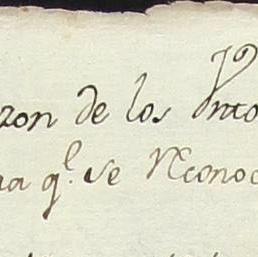 zon de los Ynto
na q.l se Reconoc